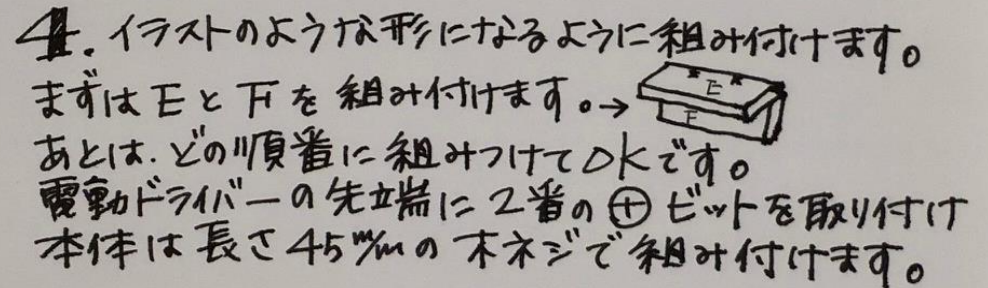 4. イラストのような形になるように組み付けます。
まずはEとFを組み付けます。→
E
F
あとは、どの順番に組みつけてOKです。
電動ドライバーの先端に2番の⊕ビットを取り付け
本体は長さ45m/mの木ネジで組み付けます。